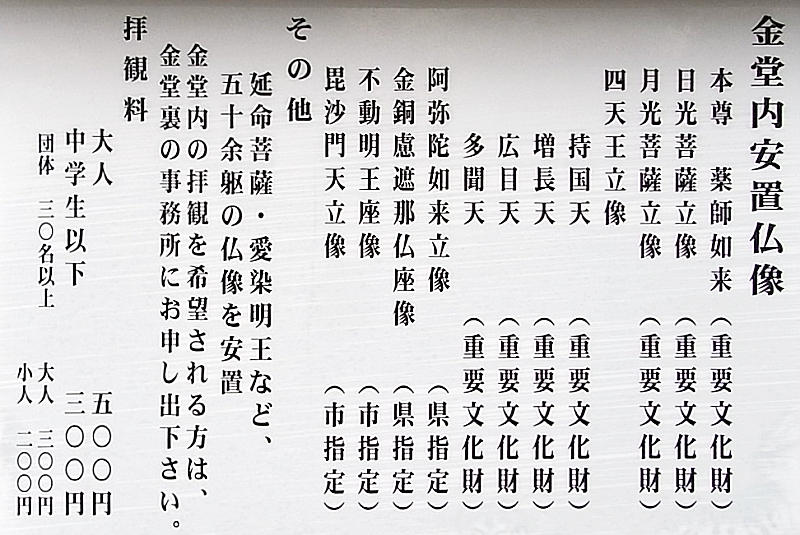 金堂内安置仏像
本尊　薬師如来（重要文化財）
日光菩薩立像（重要文化財）
月光菩薩立像（重要文化財）
四天王立像
持国天（重要文化財）
増長天（重要文化財）
広目天（重要文化財）
多聞天（重要文化財）
阿弥陀如来立像（県指定）
金銅慮遮那仏座像（県指定）
不動明王座像（市指定）
毘沙門天立像（市指定）
その他
延命菩薩・愛染明王など、
五十余躯の仏像を安置
金堂内の拝観を希望される方は、
金堂裏の事務所にお申し出下さい。
拝観料
大人　五〇〇円
中学生以下　三〇〇円
団体　三〇名以上　大人　三〇〇円
小人　二〇〇円